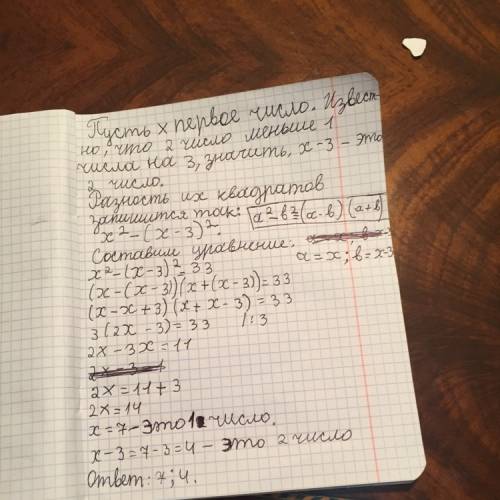 Пусть x первое число. Извест-
но, что 2 число меньше 1
числа на 3, значить, x-3 - это
2 число.
Разность их квадратов
запишится так: a²-b²=(a-b)(a+b)
x²-(x-3)².
Составим уравнение:
x²-(x-3)²=33 a=x; b=x-3
(x-(x-3))(x+(x-3))=33
(x-x+3)(x+x-3)=33
3(2x-3)=33 /:3
2x-3x=11
2x=11+3
2x=14
x=7-это 1 число.
x-3=7-3=4- это 2 число
Ответ: 7; 4.